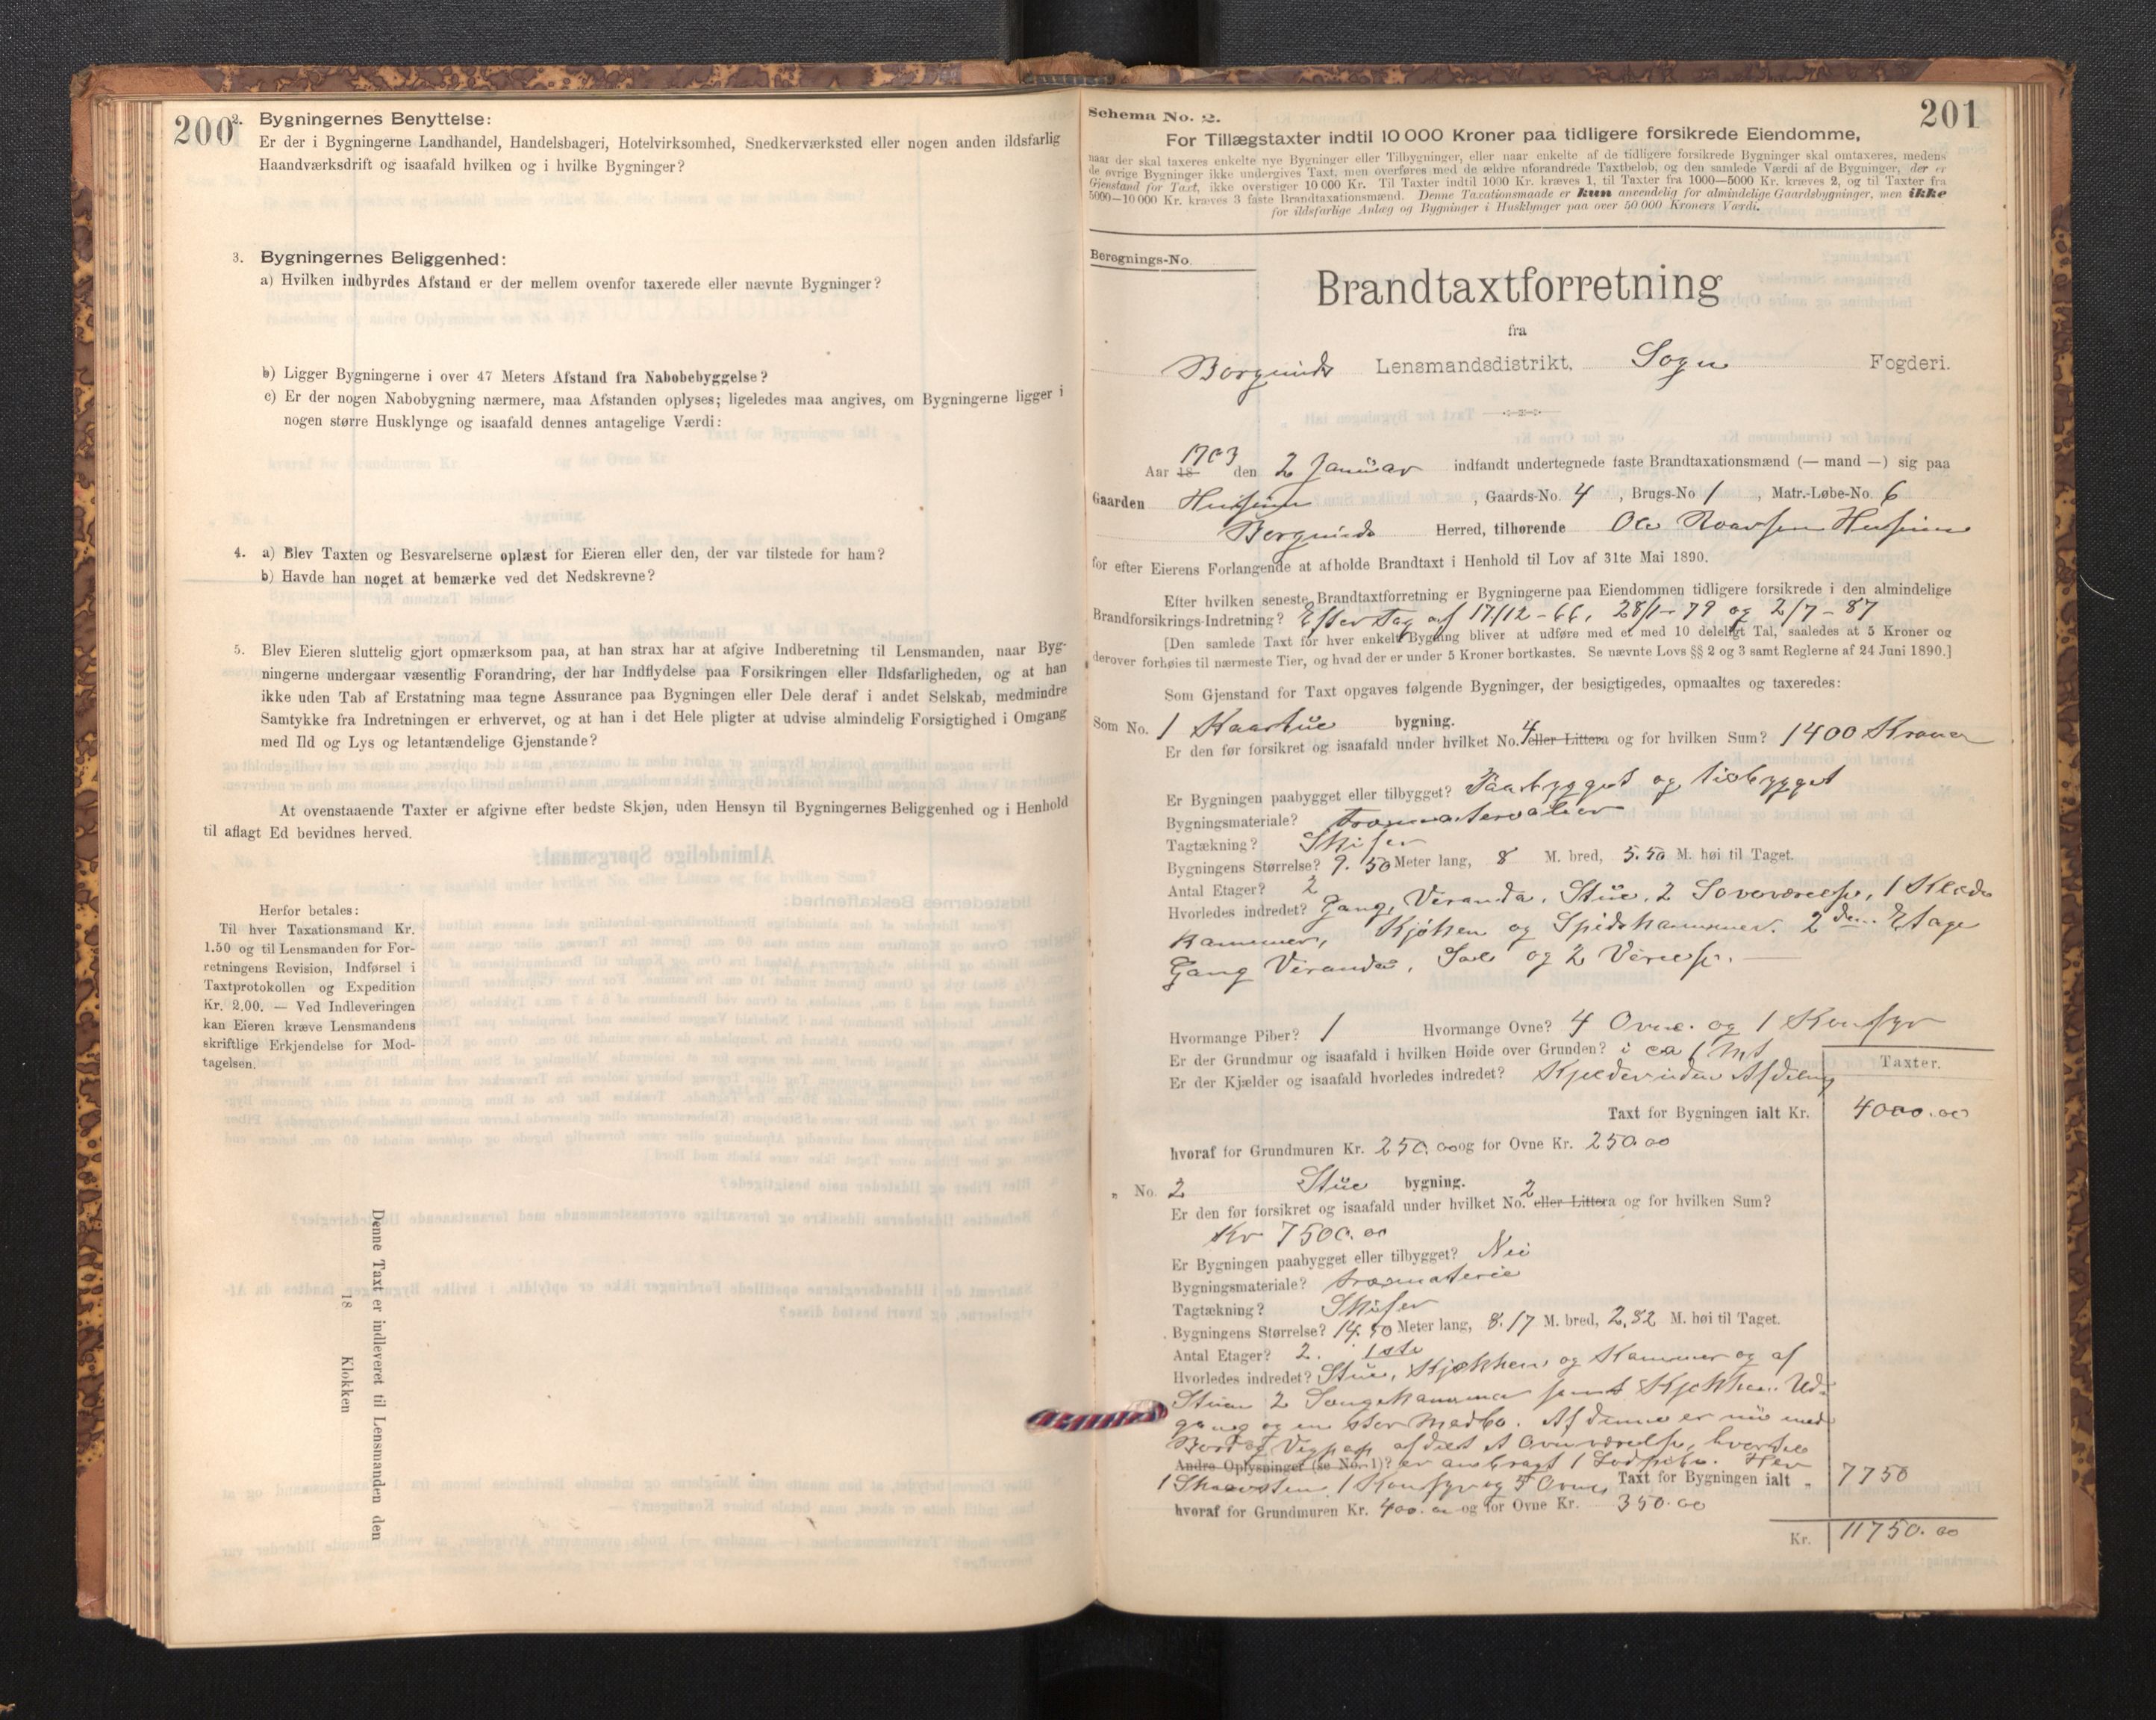 200
2. Bygningernes Benyttelse:
Er der i Bygningerne Landhandel, Handelsbageri, Hotelvirksomhed, Snedkerværksted eller nogen anden ildsfarlig
Haandværksdrift og isaafald hvilken og i hvilke Bygninger?
3. Bygningernes Beliggenhed:
a) Hvilken indbyrdes Afstand er der mellem ovenfor taxerede eller nævnte Bygninger?
b) Ligger Bygningerne i over 47 Meters Afstand fra Nabobebyggelse?
c) Er der nogen Nabobygning nærmere, maa Afstanden oplyses; ligeledes maa angives, om Bygningerne ligger i
nogen større Husklynge og isaafald dennes antagelige Værdi:
4. a) Blev Taxten og Besvarelserne oplæst for Eieren eller den, der var tilstede for ham?
b) Havde han noget at bemærke ved det Nedskrevne?
5. Blev Eieren sluttelig gjort opmærksom paa, at han strax har at afgive Indberetning til Lensmanden, naar Byg-
ningerne undergaar væsentlig Forandring, der har Indflydelse paa Forsikringen eller Ildsfarligheden, og at han
ikke uden Tab af Erstatning maa tegne Assurance paa Bygningen eller Dele deraf i andet Selskab, medmindre
Samtykke fra Indretningen er erhvervet, og at han i det Hele pligter at udvise almindelig Forsigtighed i Omgang
med Ild og Lys og letantændelige Gjenstande?
At ovenstaaende Taxter er afgivne efter bedste Skjøn, uden Hensyn til Bygningernes Beliggenhed og i Henhold
til aflagt Ed bevidnes herved.
Herfor betales:
Til hver Taxationsmand Kr.
1.50 og til Lensmanden for For-
retningens Revision, Indførsel i
Taxtprotokollen og Expedition
Kr. 2.00. — Ved Indleveringen
kan Eieren kræve Lensmandens
skriftlige Erkjendelse for Mod-
tagelsen.
Denne Taxt er indleveret til Lensmanden den
18 Klokken
201
Schema No. 2.
For Tillægstaxter indtil 10 000 Kroner paa tidligere forsikrede Eiendomme,
naar der skal taxeres enkelte nye Bygninger eller Tilbygninger, eller naar enkelte af de tidligere forsikrede Bygninger skal omtaxeres, medens
de øvrige Bygninger ikke undergives Taxt, men overføres med de ældre uforandrede Taxtbeløb, og den samlede Værdi af de Bygninger, der er
Gjenstand for Taxt, ikke overstiger 10 000 Kr. Til Taxter indtil 1000 Kr. kræves 1, til Taxter fra 1000—5000 Kr. kræves 2, og til Taxter fra
5000—10 000 Kr. kræves 3 faste Brandtaxationsmænd. Denne Taxationsmaade er kun anvendelig for almindelige Gaardsbygninger, men ikke
for ildsfarlige Anlæg og Bygninger i Husklynger paa over 50 000 Kroners Værdi.
Beregnings-No.
Brandtaxtforretning
fra
Borgunds Lensmandsdistrikt, Sogn Fogderi.
Aar 18 1903 den 2 Januar indfandt undertegnede faste Brandtaxationsmænd (— mand —) sig paa
Gaarden Husum, Gaards-No. 4, Brugs-No 1, Matr.-Løbe-No. 6
Borgunds Herred, tilhørende Ole Roarsen Husum
for efter Eierens Forlangende at afholde Brandtaxt i Henhold til Lov af 31te Mai 1890.
Efter hvilken seneste Brandtaxtforretning er Bygningerne paa Eiendommen tidligere forsikrede i den almindelige
Brandforsikrings-Indretning? Efter Tag af 17/12-66, 28/1-79 og 2/7-87
[Den samlede Taxt for hver enkelt Bygning bliver at udføre med et med 10 deleligt Tal, saaledes at 5 Kroner og
derover forhøies til nærmeste Tier, og hvad der er under 5 Kroner bortkastes. Se nævnte Lovs §§ 2 og 3 samt Reglerne af 24 Juni 1890.]
Som Gjenstand for Taxt opgaves følgende Bygninger, der besigtigedes, opmaaltes og taxeredes:
Som No. 1 Kaarstue bygning.
Er den før forsikret og isaafald under hvilket No. 4 eller Littera og for hvilken Sum? 1400 Kroner
Er Bygningen paabygget eller tilbygget? Paabygget og tilbygget
Bygningsmateriale? træmaterialier
Tagtækning? Skifer
Bygningens Størrelse? 9.50 Meter lang, 8 M. bred, 5.50 M. høi til Taget.
Antal Etager? 2
Hvorledes indredet? Gang, Veranda, Stue, 2 Soveværelse, 1 Klæde
kammer, Kjøken og Spiskammer. 2den Etage
Gang Veranda, Sal og 2 Værelse.
Hvormange Piber? 1 Hvormange Ovne? 4 Ovne og 1 Komfyr
Er der Grundmur og isaafald i hvilken Høide over Grunden? i ca 1 Mt
Er der Kjælder og isaafald hvorledes indredet? Kjelder uden Afdeling
Taxter.
Taxt for Bygningen ialt Kr. 4000.00
hvoraf for Grundmuren Kr. 250.00 og for Ovne Kr. 250.00
„ No. 2 Stue bygning.
Er den før forsikret og isaafald under hvilket No. 2 eller Littera og for hvilken Sum?
Kr 7500.00
Er Bygningen paabygget eller tilbygget? Nei
Bygningsmateriale? træmaterie
Tagtækning? Skifer
Bygningens Størrelse? 14.50 Meter lang, 8.17 M. bred, 2,82 M. høi til Taget.
Antal Etager? 2. 1ste
Hvorledes indredet? Stue, Kjøkken og Kammer og af
Stuen 2 Sengekammer samt Kjøkken. Ud-
gang og en stor Madbo. Af denne er nu med
Bord og afdelt et værelse, hvortil
Andre Oplysninger (se No. 1)? er anbragt 1 Her
1 Skorsten, 1 Komfyr og 5 Ovne, Taxt for Bygningen ialt „ 7750
hvoraf for Grundmuren Kr. 400.00 og for Ovne Kr. 350.00
Kr. 11750.00